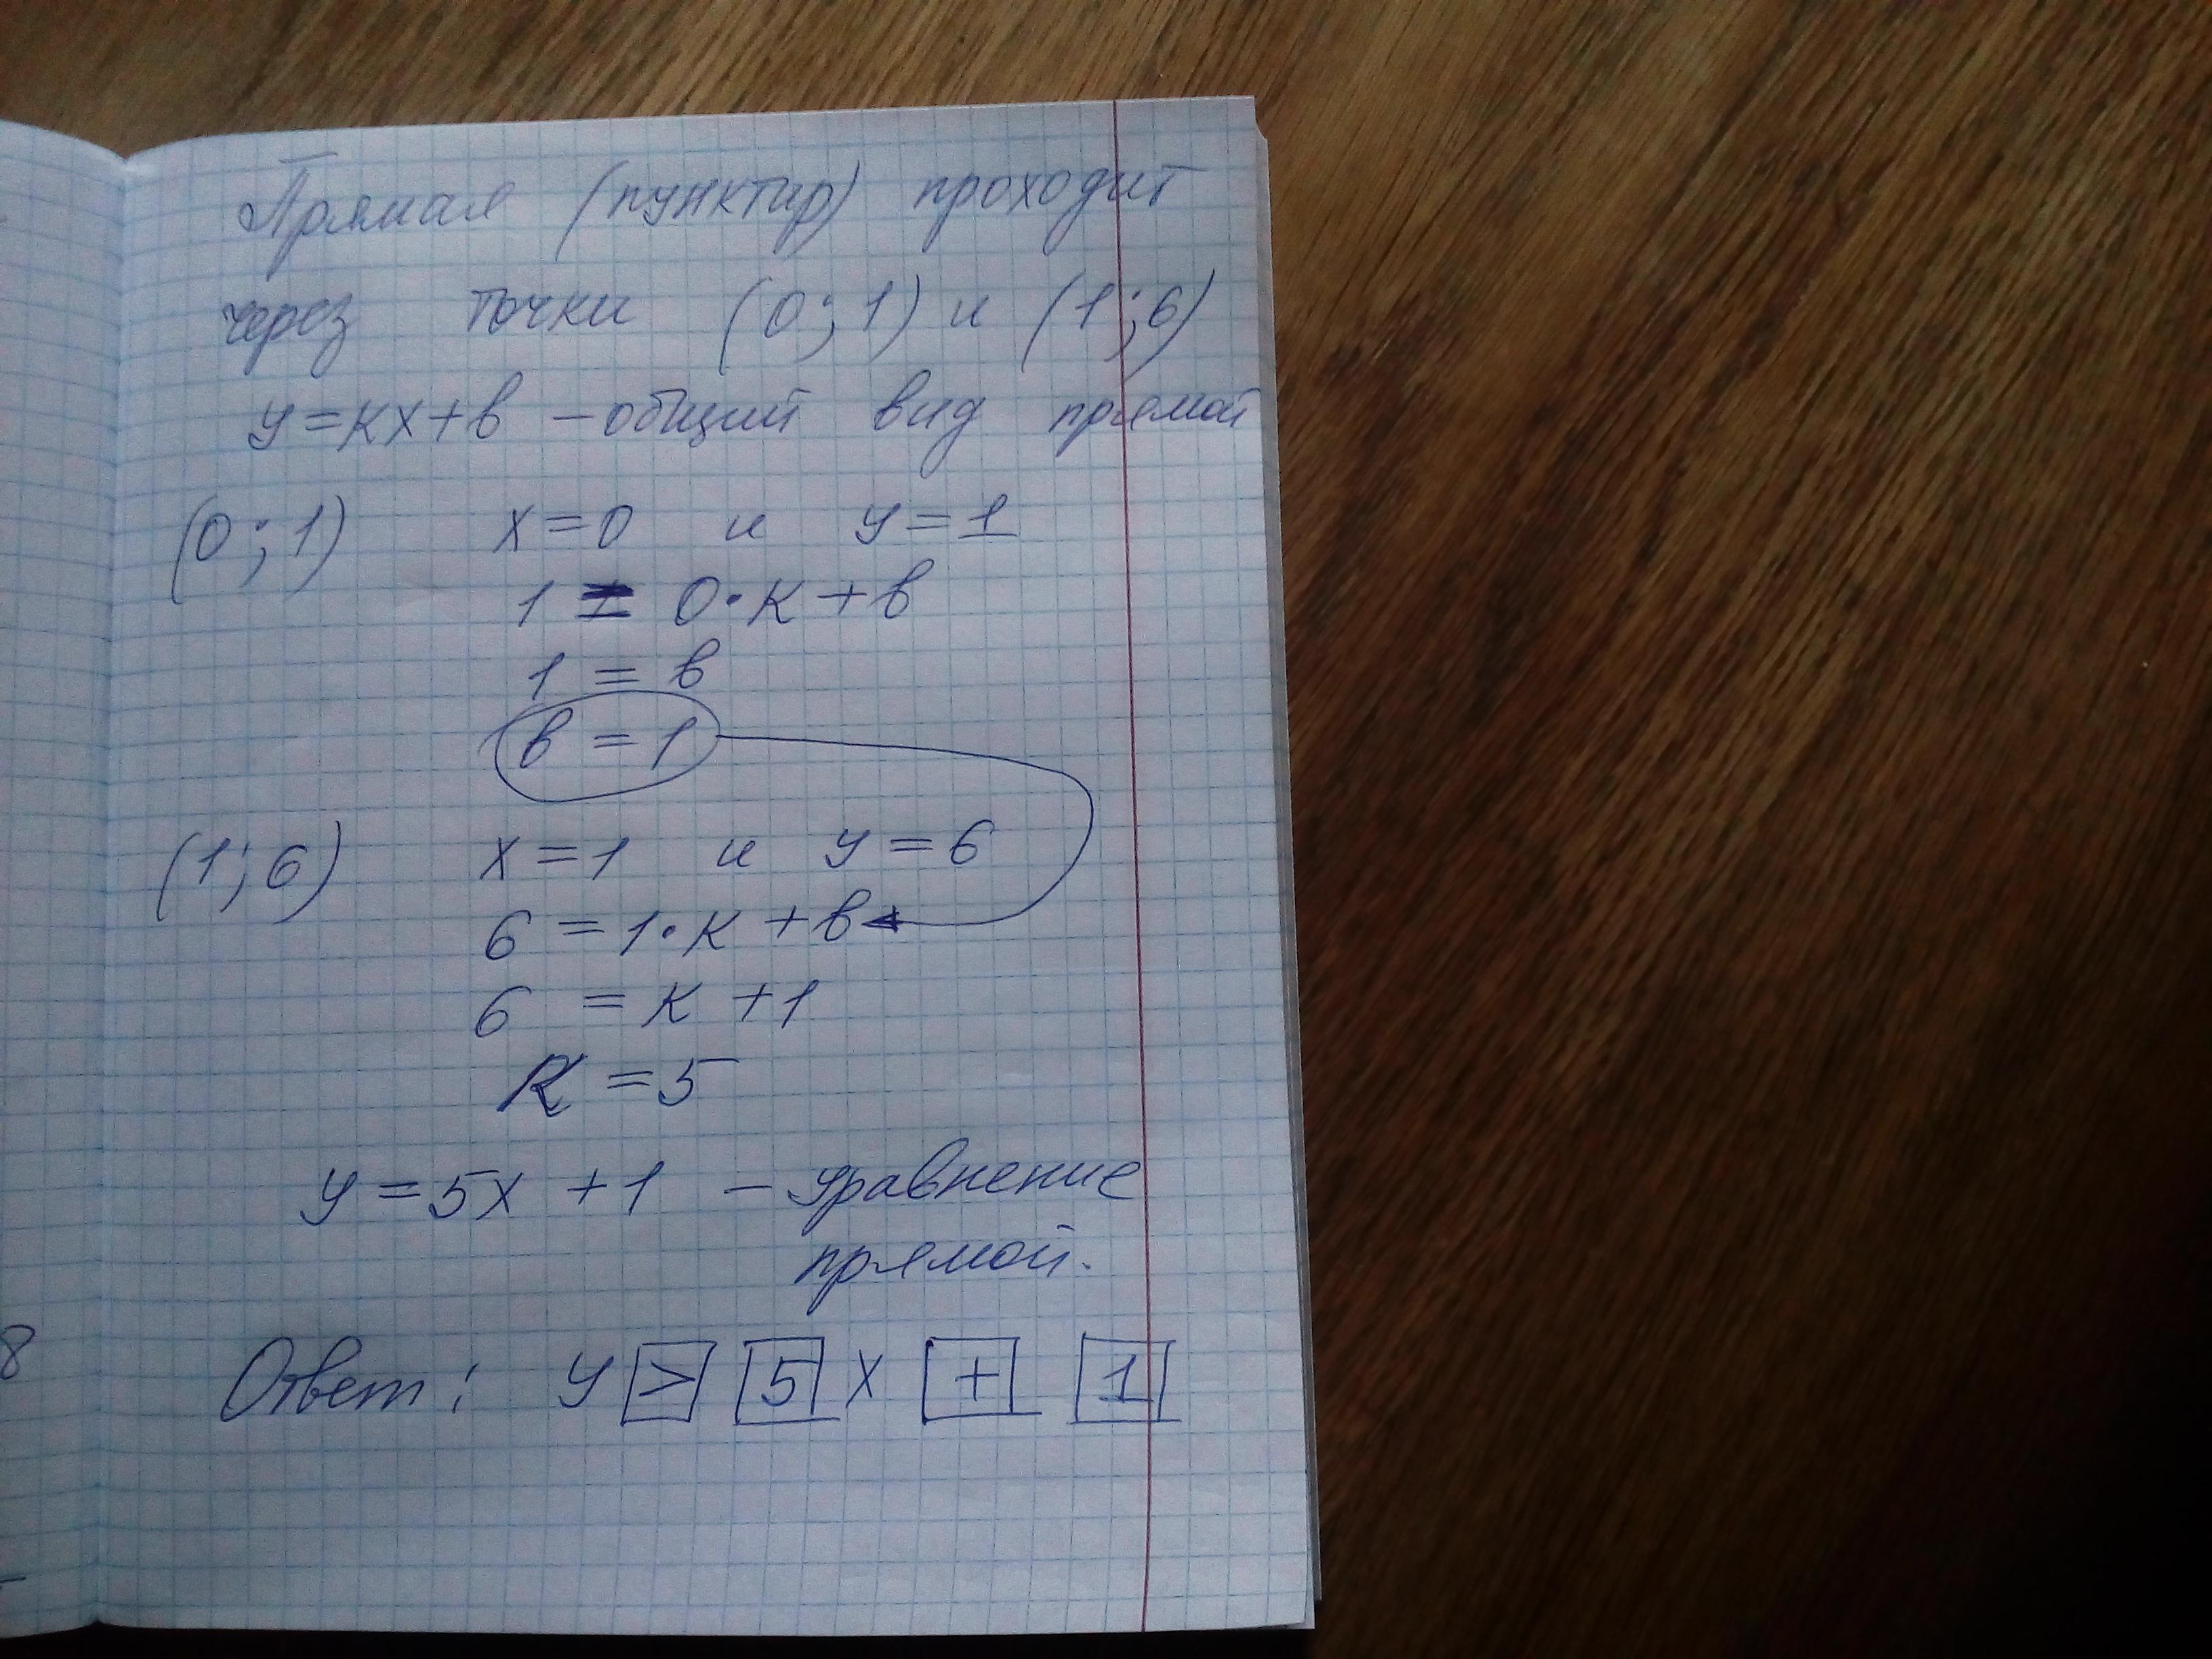 Прямая (пунктир) проходит
через точки (0;1) и (1;6)
y=кх+в – общий вид прямой
(0;1) х=0 и y=1
1 = 0·к+в
1 = в
в = 1
(1;6) х=1 и y=6
6 = 1·к+в
6 = к+1
к = 5
y=5х+1 – уравнение
прямой.
8
Ответ: y > 5 х + 1